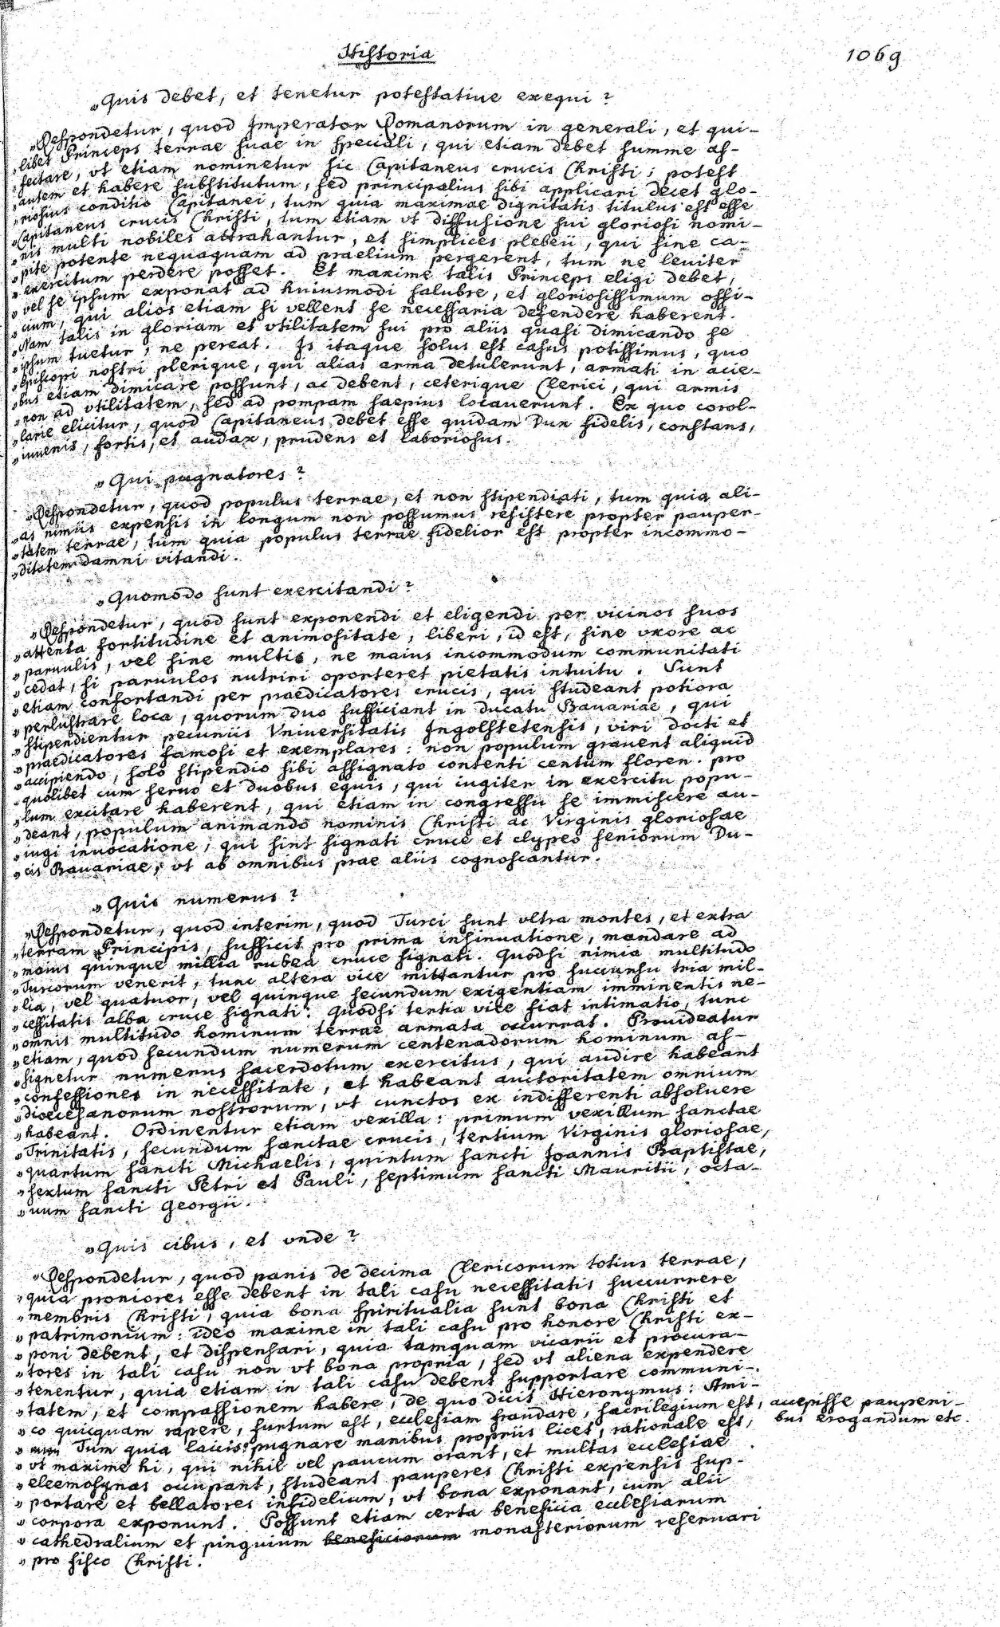 Historia 1069
„Quis debet, et tenetur potestative exequi?
„Respondetur, quod Imperator Romanorum in generali, et qui-
„libet Princeps terrae suae in speciali, qui etiam debet summe af-
„fectare, vt etiam nominetur sic Capitaneus crucis Christi: potest
„autem et habere substitutum, sed principalius sibi applicari decet glo-
„riosius conditio Capitanei, tum quia maximae dignitatis titulus est esse
„Capitaneus crucis Christi, tum etiam vt diffusione sui gloriosi nomi-
„nis multi nobiles attrahantur, et simplices plebeii, qui sine ca-
„pite potente nequaquam ad praelium pergerent, tum ne leviter
„exercitum perdere posset. Et maxime talis Princeps eligi debet,
„vel se ipsum exponat ad huiusmodi salubre, et gloriosissimum offi-
„cium, qui alios etiam si vellent se necessaria defendere haberent.
„Nam talis in gloriam et vtilitatem sui pro aliis quasi dimicando se
„ipsum tuetur, ne pereat. Is itaque solus est casus potissimus, quo
„Episcopi nostri plerique, qui alias arma detulerunt, armati in acie-
„bus etiam dimicare possunt, ac debent, ceterique Clerici, qui armis
„non ad vtilitatem, sed ad pompam saepius locauerunt. Ex quo corol-
„larie elicitur, quod Capitaneus debet esse quidam Dux fidelis, constans,
„iuuenis, fortis, et audax, prudens et laboriosus.
„Qui pugnatores?
„Respondetur, quod populus terrae, et non stipendiati, tum quia ali-
„as nimiis expensis in longum non possumus resistere propter pauper-
„tatem terrae, tum quia populus terrae fidelior est propter incommo-
„ditatem damni vitandi.
„Quomodo sunt exercitandi?
„Respondetur, quod sunt exponendi et eligendi per vicinos suos
„attenta fortitudine et animositate, liberi, id est, sine vxore ac
„paruulis, vel sine multis, ne maius incommodum communitati
„cedat, si paruulos nutriri oporteret pietatis intuitu. Sunt
„etiam confortandi per praedicatores crucis, qui studeant potiora
„perlustrare loca, quorum duo sufficiant in ducatu Bauariae, qui
„stipendientur pecuniis Vniuersitatis Ingolstetensis, viri docti et
„praedicatores famosi et exemplares: non populum grauent aliquid
„accipiendo, solo stipendio sibi assignato contenti centum floren. pro
„quolibet cum seruo et duobus equis, qui iugiter in exercitu popu-
„lum excitare haberent, qui etiam in congressu se immiscere au-
„deant, populum animando nominis Christi ac Virginis gloriosae
„iugi inuocatione, qui sint signati cruce et clypeo seniorum Du-
„cis Bauariae, vt ab omnibus prae aliis cognoscantur.
„Quis numerus?
„Respondetur, quod interim, quod Turci sunt vltra montes, et extra
„terram Principis, sufficit pro prima insinuatione, mandare ad
„maius quinque millia rubea cruce signati. Quodsi nimia multitudo
„Turcorum venerit, tunc altera vice mittantur pro succursu tria mil-
„lia, vel quatuor, vel quinque secundum exigentiam imminentis ne-
„cessitatis alba cruce signati. Quodsi tertia vice fiat intimatio, tunc
„omnis multitudo hominum terrae armata occurrat. Prouideatur
„etiam, quod secundum numerum centenadorum hominum as-
„signetur numerus sacerdotum exercitus, qui audire habeant
„confessiones in necessitate, et habeant auctoritatem omnium
„dioecesanorum nostrorum, vt cunctos ex indifferenti absoluere
„habeant. Ordinentur etiam vexilla: primum vexillum sanctae
„Trinitatis, secundum sanctae crucis, tertium Virginis gloriosae,
„quartum sancti Michaelis, quintum sancti Joannis Baptistae,
„sextum sancti Petri et Pauli, septimum sancti Mauritii, octa-
„uum sancti Georgii.
„Quis cibus, et vnde?
„Respondetur, quod panis de decima Clericorum totius terrae,
„quia proniores esse debent in tali casu necessitatis succurrere
„membris Christi, quia bona spiritualia sunt bona Christi et
„patrimonium: ideo maxime in tali casu pro honore Christi ex-
„poni debent, et dispensari, quia tamquam vicarii et procura-
„tores in tali casu non vt bona propria, sed vt aliena expendere
„tenentur, quia etiam in tali casu debent supportare communi-
„tatem, et compassionem habere, de quo dicit Hieronymus: Ami-
„co quicquam rapere, furtum est, ecclesiam fraudare, sacrilegium est, accepisse pauperi-
bus erogandum etc.
„Tum quia laicis pugnare manibus propriis licet, rationale est,
„vt maxime hi, qui nihil vel paucum orant, et multas ecclesiae
„eleemosynas occupant, studeant pauperes Christi expensis sup-
„portare et bellatores infidelium, vt bona exponant, cum alii
„corpora exponunt. Possunt etiam certa beneficia ecclesiarum
„cathedralium et pinguium beneficiorum monasteriorum reseruari
„pro fisco Christi.